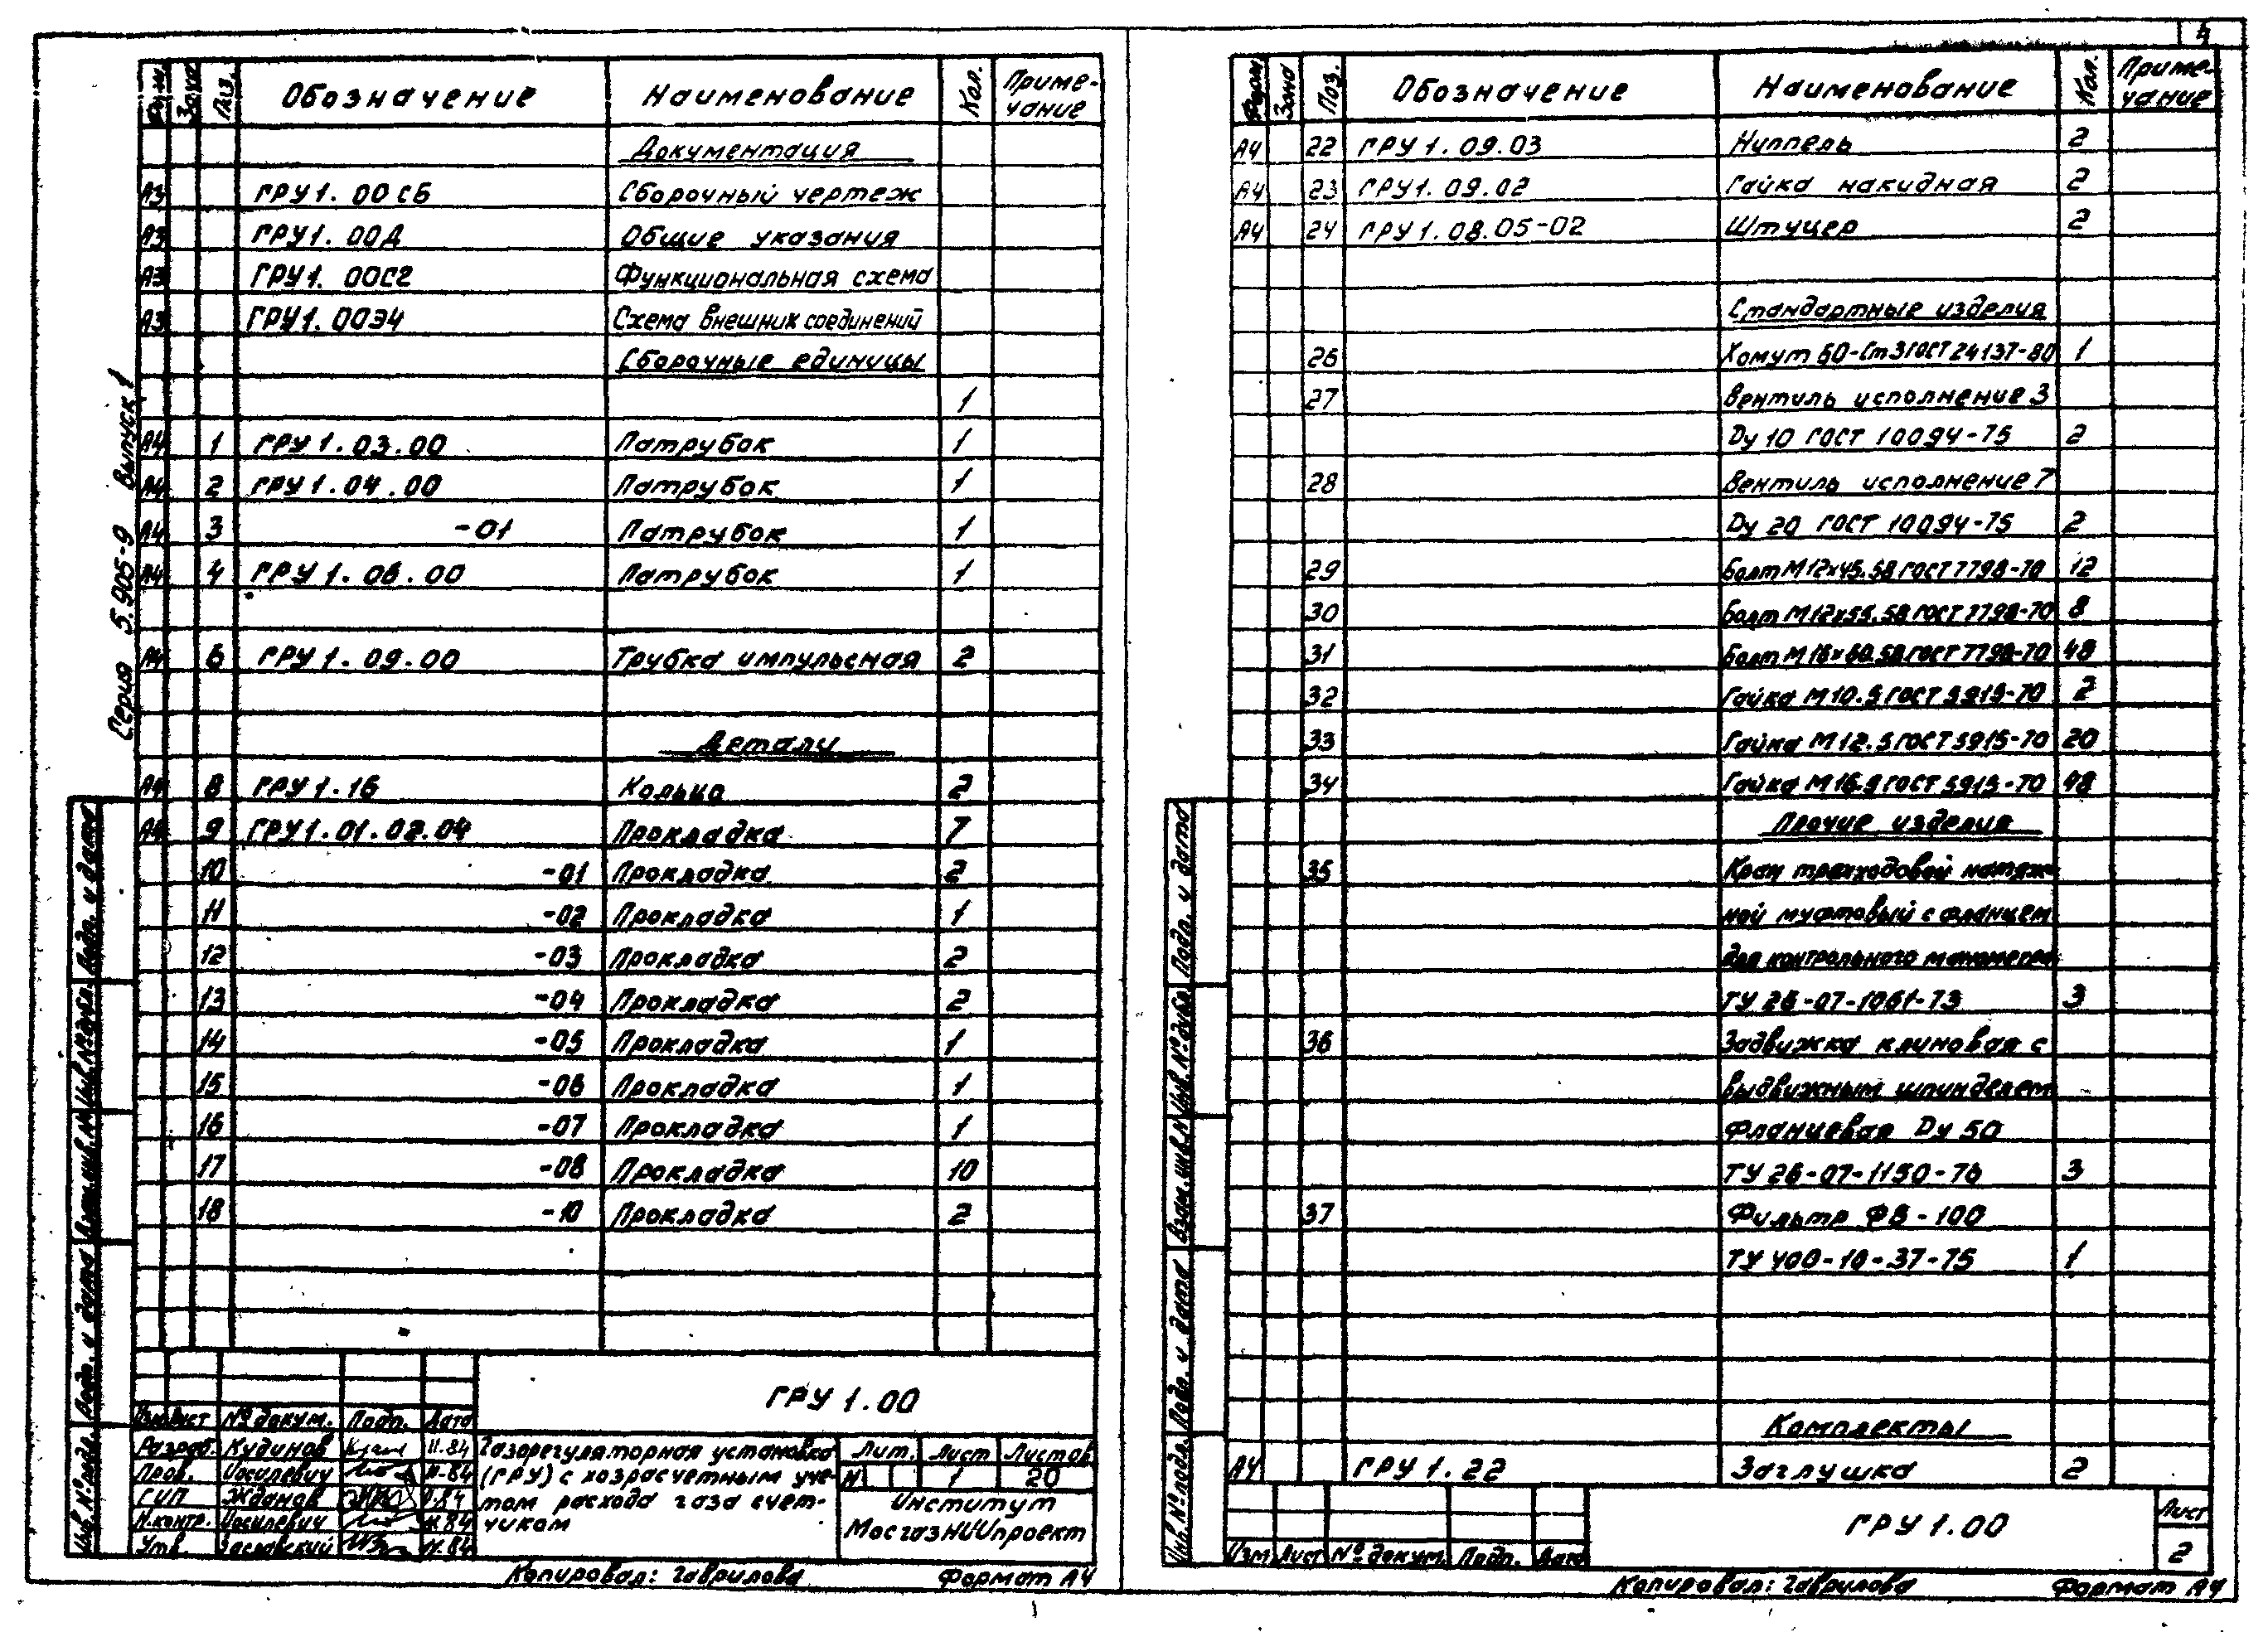 4
Серия 5.905-9 Выпуск 1
Форм. Зона Поз. Обозначение Наименование Кол. Приме-
чание
Документация
А3 ГРУ1. 00 СБ Сборочный чертеж
А3 ГРУ1. 00Д Общие указания
А3 ГРУ1. 00С2 Функциональная схема
А3 ГРУ1. 00Э4 Схема внешних соединений
Сборочные единицы
1
А4 1 ГРУ1.03.00 Патрубок 1
А4 2 ГРУ1.04.00 Патрубок 1
А4 3 -01 Патрубок 1
А4 4 ГРУ1.06.00 Патрубок 1
А4 6 ГРУ1.09.00 Трубка импульсная 2
Детали
А4 8 ГРУ1.16 Кольцо 2
А4 9 ГРУ1.01.02.04 Прокладка 7
10 -01 Прокладка 2
11 -02 Прокладка 1
12 -03 Прокладка 2
13 -04 Прокладка 2
14 -05 Прокладка 1
15 -06 Прокладка 1
16 -07 Прокладка 1
17 -08 Прокладка 10
18 -10 Прокладка 2
Инв.№подл. Подп. и дата Взам.инв.№ Инв.№дубл. Подп. и дата
ГРУ 1.00
Изм Лист № докум. Подп. Дата
Разраб. Кудинов 11.84
Пров. Иосилевич 11.84
ГИП Жданов 11.84
Н.контр. Иосилевич 11.84
Утв. Заславский 11.84
Газорегуляторная установка
(ГРУ) с хозрасчетным уче-
том расхода газа счет-
чиком
Лит. Лист Листов
И 1 20
Институт
МосгазНИИпроект
Копировал: Гаврилова Формат А4
Форм. Зона Поз. Обозначение Наименование Кол. Приме-
чание
А4 22 ГРУ1.09.03 Ниппель 2
А4 23 ГРУ1.09.02 Гайка накидная 2
А4 24 ГРУ1.08.05-02 Штуцер 2
Стандартные изделия
26 Хомут 60-Ст3 ГОСТ 24137-80 1
27 Вентиль исполнение 3
Dу 10 ГОСТ 10094-75 2
28 Вентиль исполнение 7
Dу 20 ГОСТ 10094-75 2
29 Болт М12х45.58 ГОСТ 7798-70 12
30 Болт М12х55.58 ГОСТ 7798-70 8
31 Болт М16х60.58 ГОСТ 7798-70 48
32 Гайка М10.5 ГОСТ 5915-70 2
33 Гайка М12.5 ГОСТ 5915-70 20
34 Гайка М16.9 ГОСТ 5915-70 48
Прочие изделия
35 Кран трехходовой натяж-
ной муфтовый с фланцем
для контрольного манометра
ТУ 26-07-1061-73 3
36 Задвижка клиновая с
выдвижным шпинделем
фланцевая Dу 50
ТУ 26-07-1150-76 3
37 Фильтр ФВ-100
ТУ 400-10-37-75 1
Комплекты
А4 ГРУ1.22 Заглушка 2
Инв.№подл. Подп. и дата Взам.инв.№ Инв.№дубл. Подп. и дата
Изм Лист № докум. Подп. Дата
ГРУ 1.00
Лист
2
Копировал: Гаврилова Формат А4